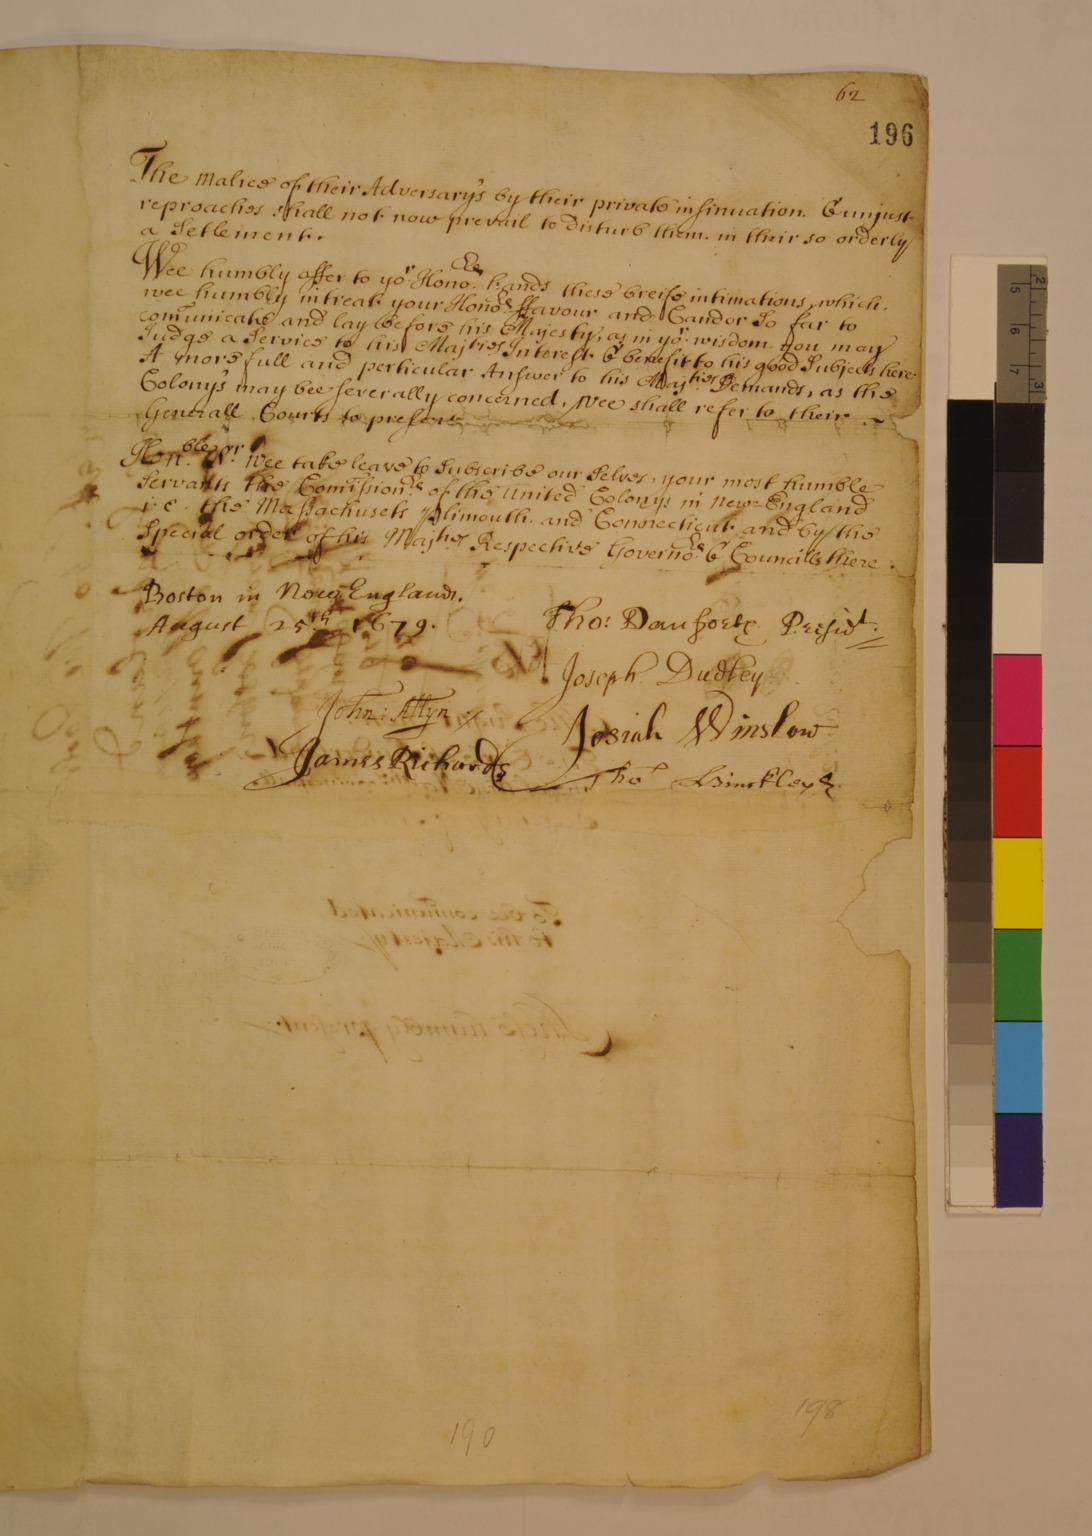 62
196
The malice of their Adversary's by their private insinuation. & unjust
reproaches shall not now prevail to disturb them in their so orderly
a Setlement.
Wee humbly offer to yor Honobles hands these breife intimations, which
wee humbly intreat your Honors ffavour and Candor so far to
comunicate and lay before his Majesty, as in yor wisdom you may
Judge a Service to his Majties Interest & benefit to his good Subjects here
A more full and perticular Answer to his Majties Demands, as the
Colony's may bee severally concerned, wee shall refer to their
Generall Courts to present
Honble Sr. wee take leave to Subscribe our Selves, your most humble
Servants The Comissionrs of the United Colonys in New England
i.e. the Massachusets Plimouth and Connecticut and by the
Special order of his Majties Respective Governors & Councills there.
Boston in New England.
August 25th 1679.
Tho: Danforth Presidt.
Joseph Dudley
John: Allyn
Josiah Winslow
James Richards
Tho Hinckley
190
198